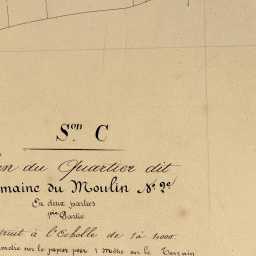 Son C
du Quartier dit
maine du Moulin No 2e
En deux parties
1re Partie
truit à l'Echelle de 1 à 4000
sur le papier pour 1 Mètre sur le Terrain